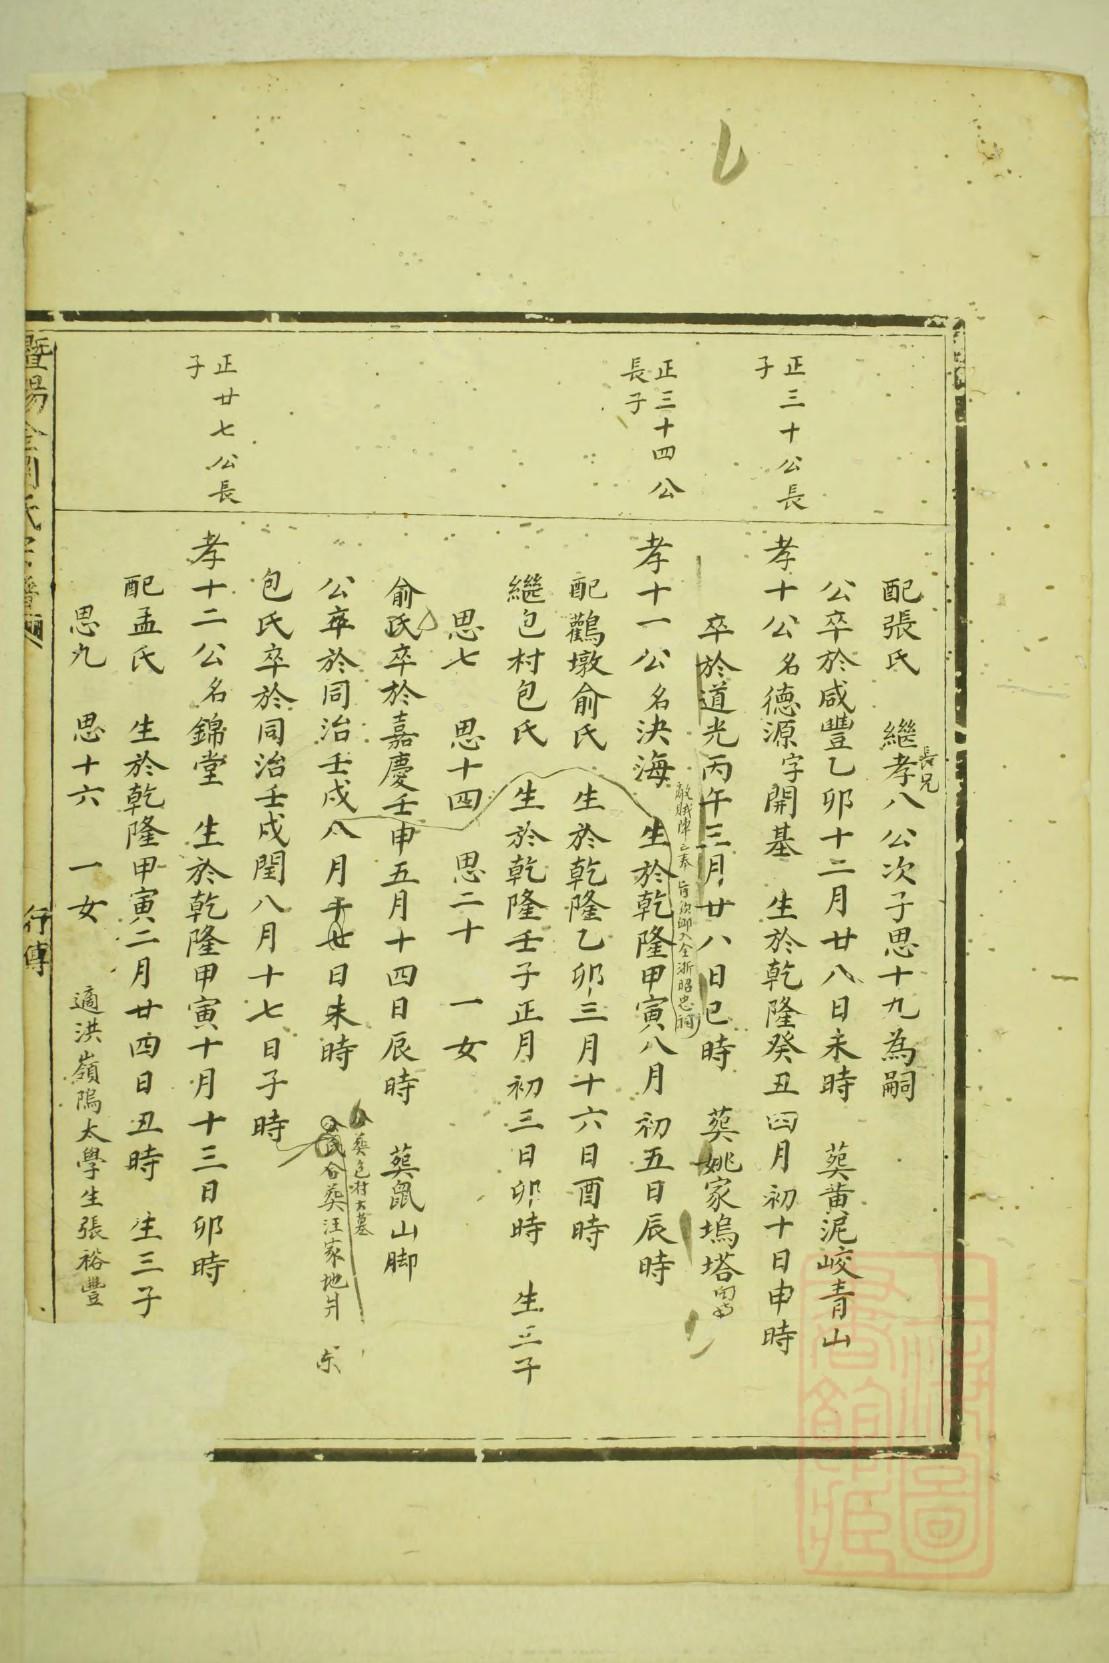 配張氏 繼長兄孝八公次子思十九為嗣
公卒於咸豐乙卯十二月廿八日未時 葬黄泥峧青山
正三十公長子
孝十公名德源字開基 生於乾隆癸丑四月初十日申時
卒於道光丙午三月廿八日巳時 葬姚家塢塔
正三十四公長子
孝十一公名決海 生於乾隆甲寅八月初五日辰時
配鸛墩俞氏 生於乾隆乙卯三月十六日酉時
繼包村包氏 生於乾隆壬子正月初三日卯時 生三子
思七 思十四 思二十 一女
俞氏卒於嘉慶壬申五月十四日辰時 葬鼠山脚
公卒於同治壬戌八月廿日未時
公葬包村大墓
合葬汪家地爿
包氏卒於同治壬戌閏八月十七日子時
正廿七公長子
孝十二公名錦堂 生於乾隆甲寅十月十三日卯時
配孟氏 生於乾隆甲寅二月廿四日丑時 生三子
思九 思十六 一女 適洪嶺隖太學生張裕豐
行傳
上海圖書館藏